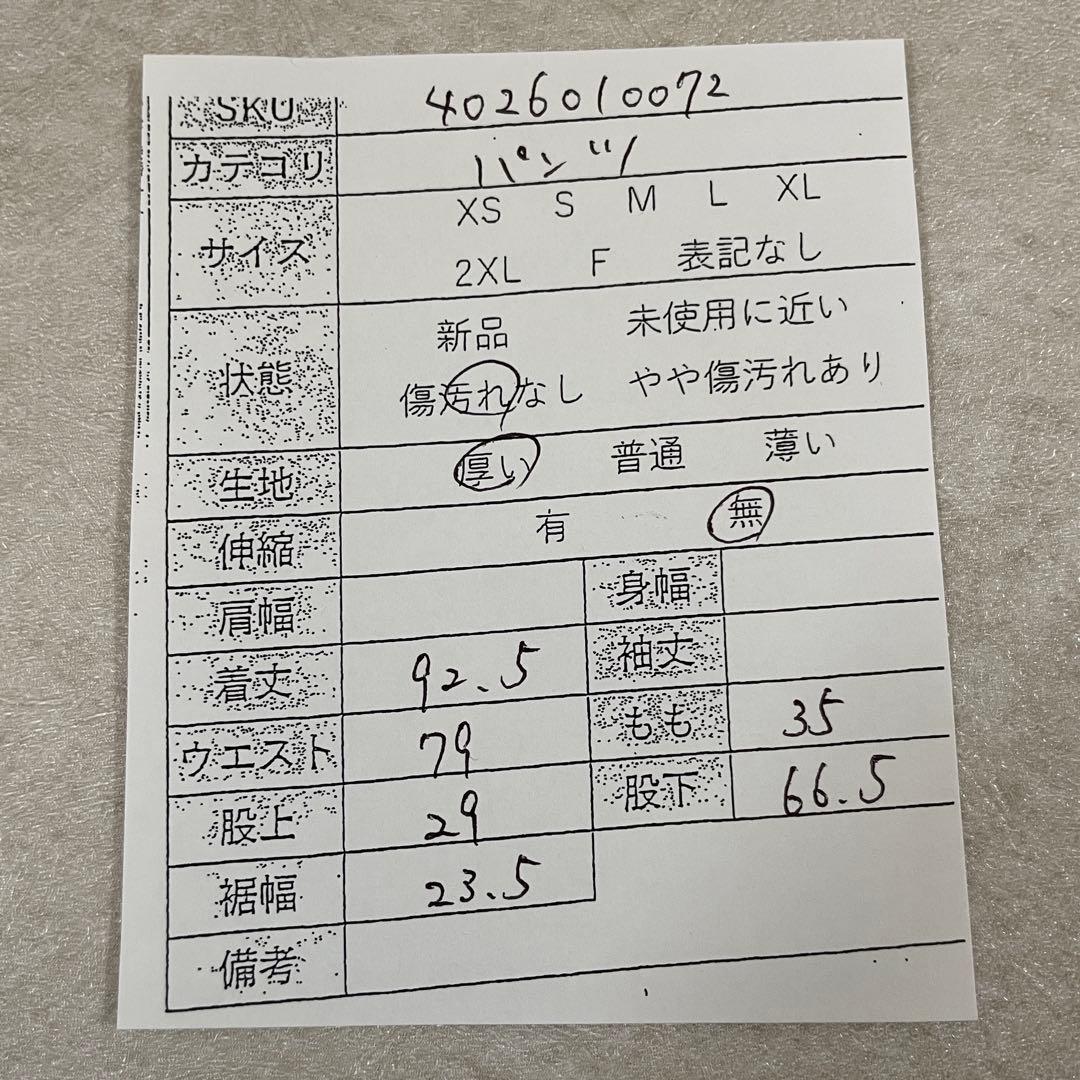 SKU 4026010072
カテゴリ パンツ
サイズ XS S M L XL
2XL F 表記なし
状態 新品 未使用に近い
傷汚れなし やや傷汚れあり
生地 厚い 普通 薄い
伸縮 有 無
肩幅 身幅
着丈 92.5 袖丈
ウエスト 79 もも 35
股上 29 股下 66.5
裾幅 23.5
備考